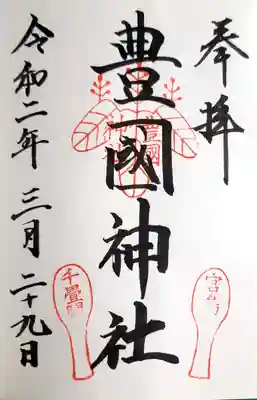 奉拝
豊國神社
令和二年三月二十九日
千畳閣